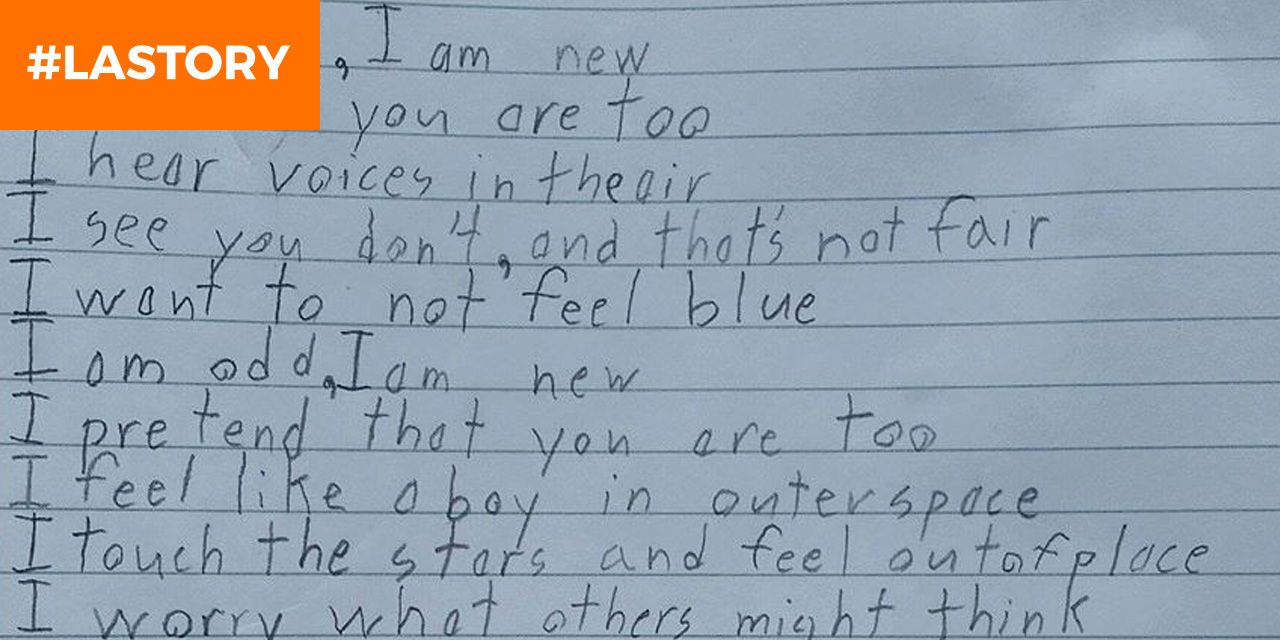 #LASTORY
, I am new
you are too
I hear voices in theair
I see you don't, and that's not fair
I want to not feel blue
I am odd, I am new
I pretend that you are too
I feel like a boy in outerspace
I touch the stars and feel outofplace
I worry what others might think